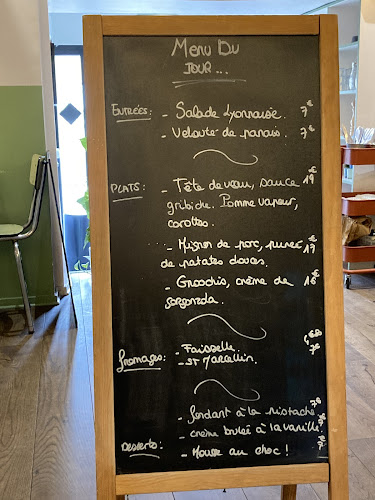 Menu Du
Jour...
Entrées: - Salade Lyonnaise. 7€
- Velouté de panais. 7€
Plats: - Tête de veau, sauce 19€
gribiche. Pomme vapeur,
carottes.
- Mignon de porc, purée 17€
de patates douces.
- Gnocchis, crème de 16€
gorgonzola.
Fromages: - Faisselle.
- St Marcellin. 7€
- fondant à la pistache 7€
- crème brulée à la vanille
Desserts: - Mousse au choc!